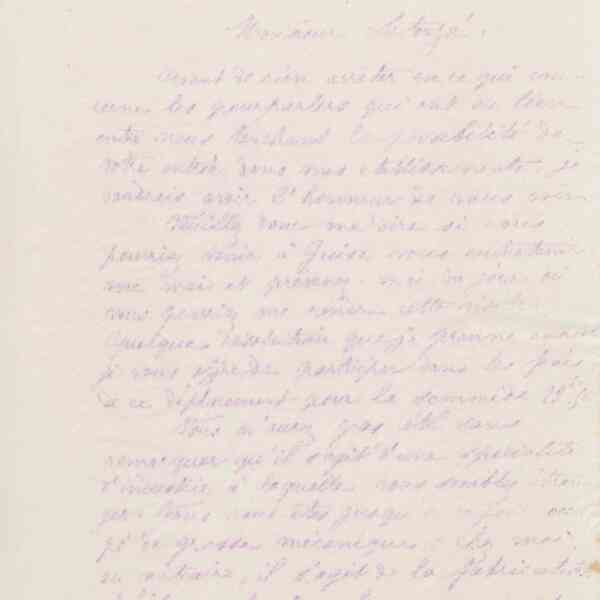 Monsieur
Avant de rien arrêter en ce qui con-
cerne les pourparlers qui ont eu lieu
entre nous touchant la possibilité de
votre entrée dans mes établissements, je
voudrais avoir l'honneur de vous voir.
Veuillez donc me dire si vous
pourriez venir à Guise vous entretenir
avec moi et prévenez-moi du jour où
vous pourriez me rendre cette visite.
Quelque résolution que je prenne
je vous offre de participer dans les frais
de ce déplacement pour la somme de
Vous n'avez pas été sans
remarquer qu'il s'agit d'une spécialité
d'industrie à laquelle vous semblez étran-
ger. Vous vous êtes jusqu'à ce jour occu-
pé de grosse mécanique ; chez moi,
au contraire, il s'agit de la fabrication